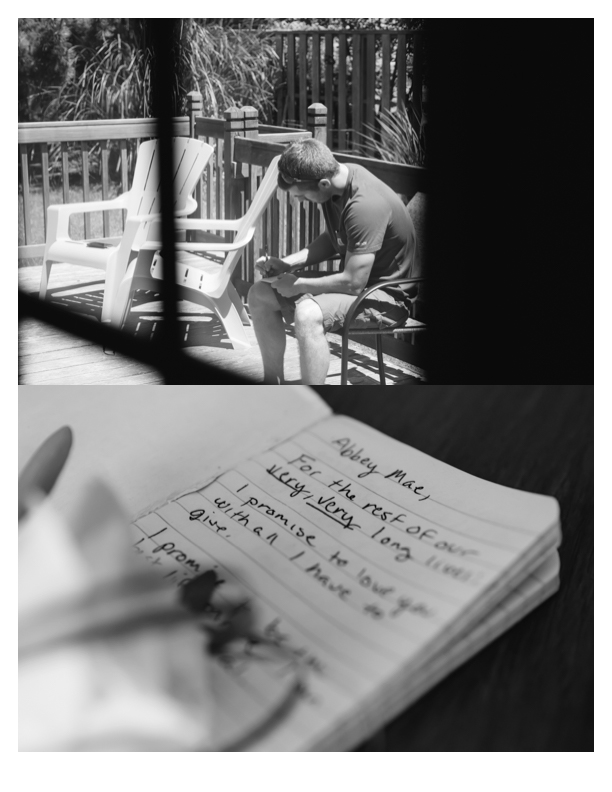 Abbey Mae,
For the rest of our
very, very long lives
I promise to love you
with all I have to
give.
I promise
be you